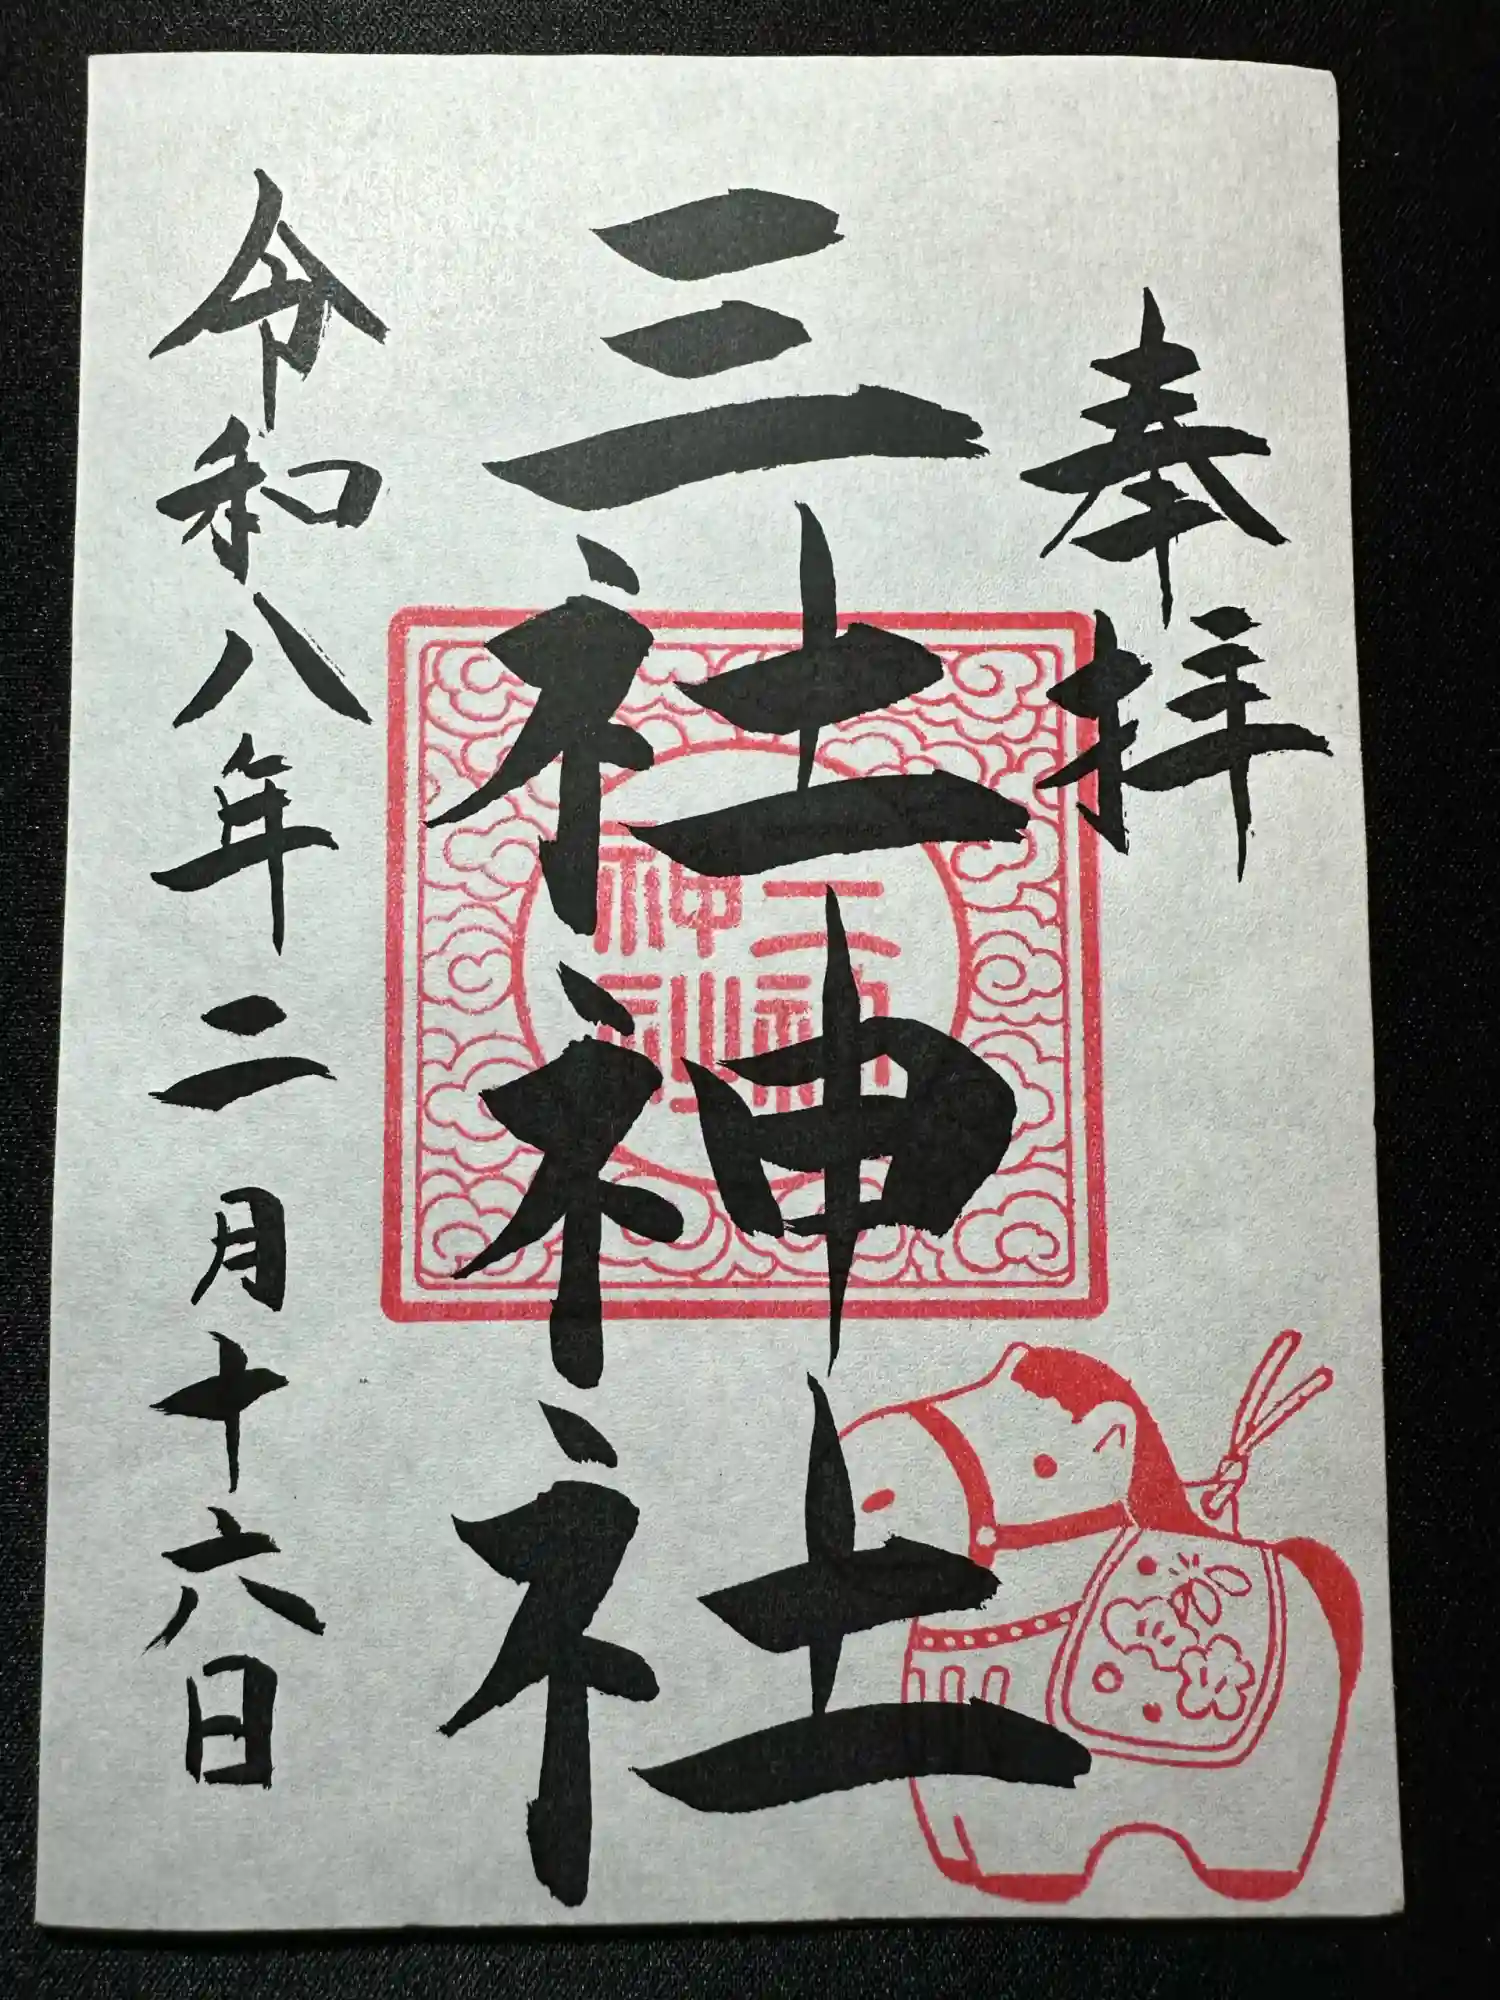 奉拝
三社神社
三社神社
令和八年二月十六日